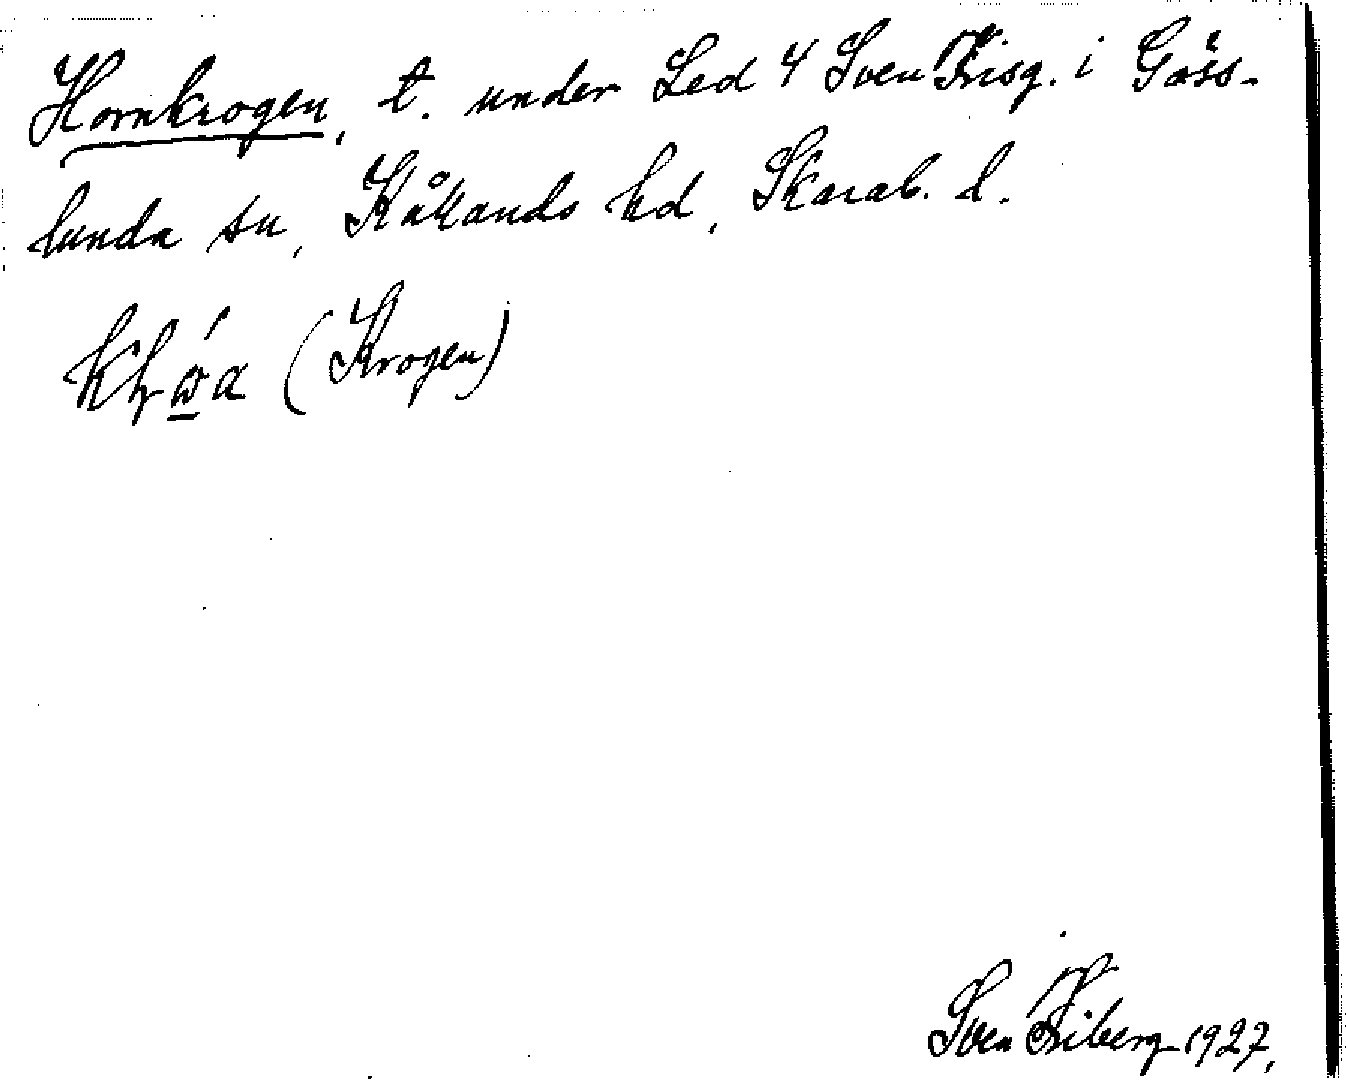 Hornkrogen, t. under Led 4 Sven Trisg. i Göss-
lunda sn, Kållands hd, Skarab. l.
(Krogen)
Sven Fiberg 1927.